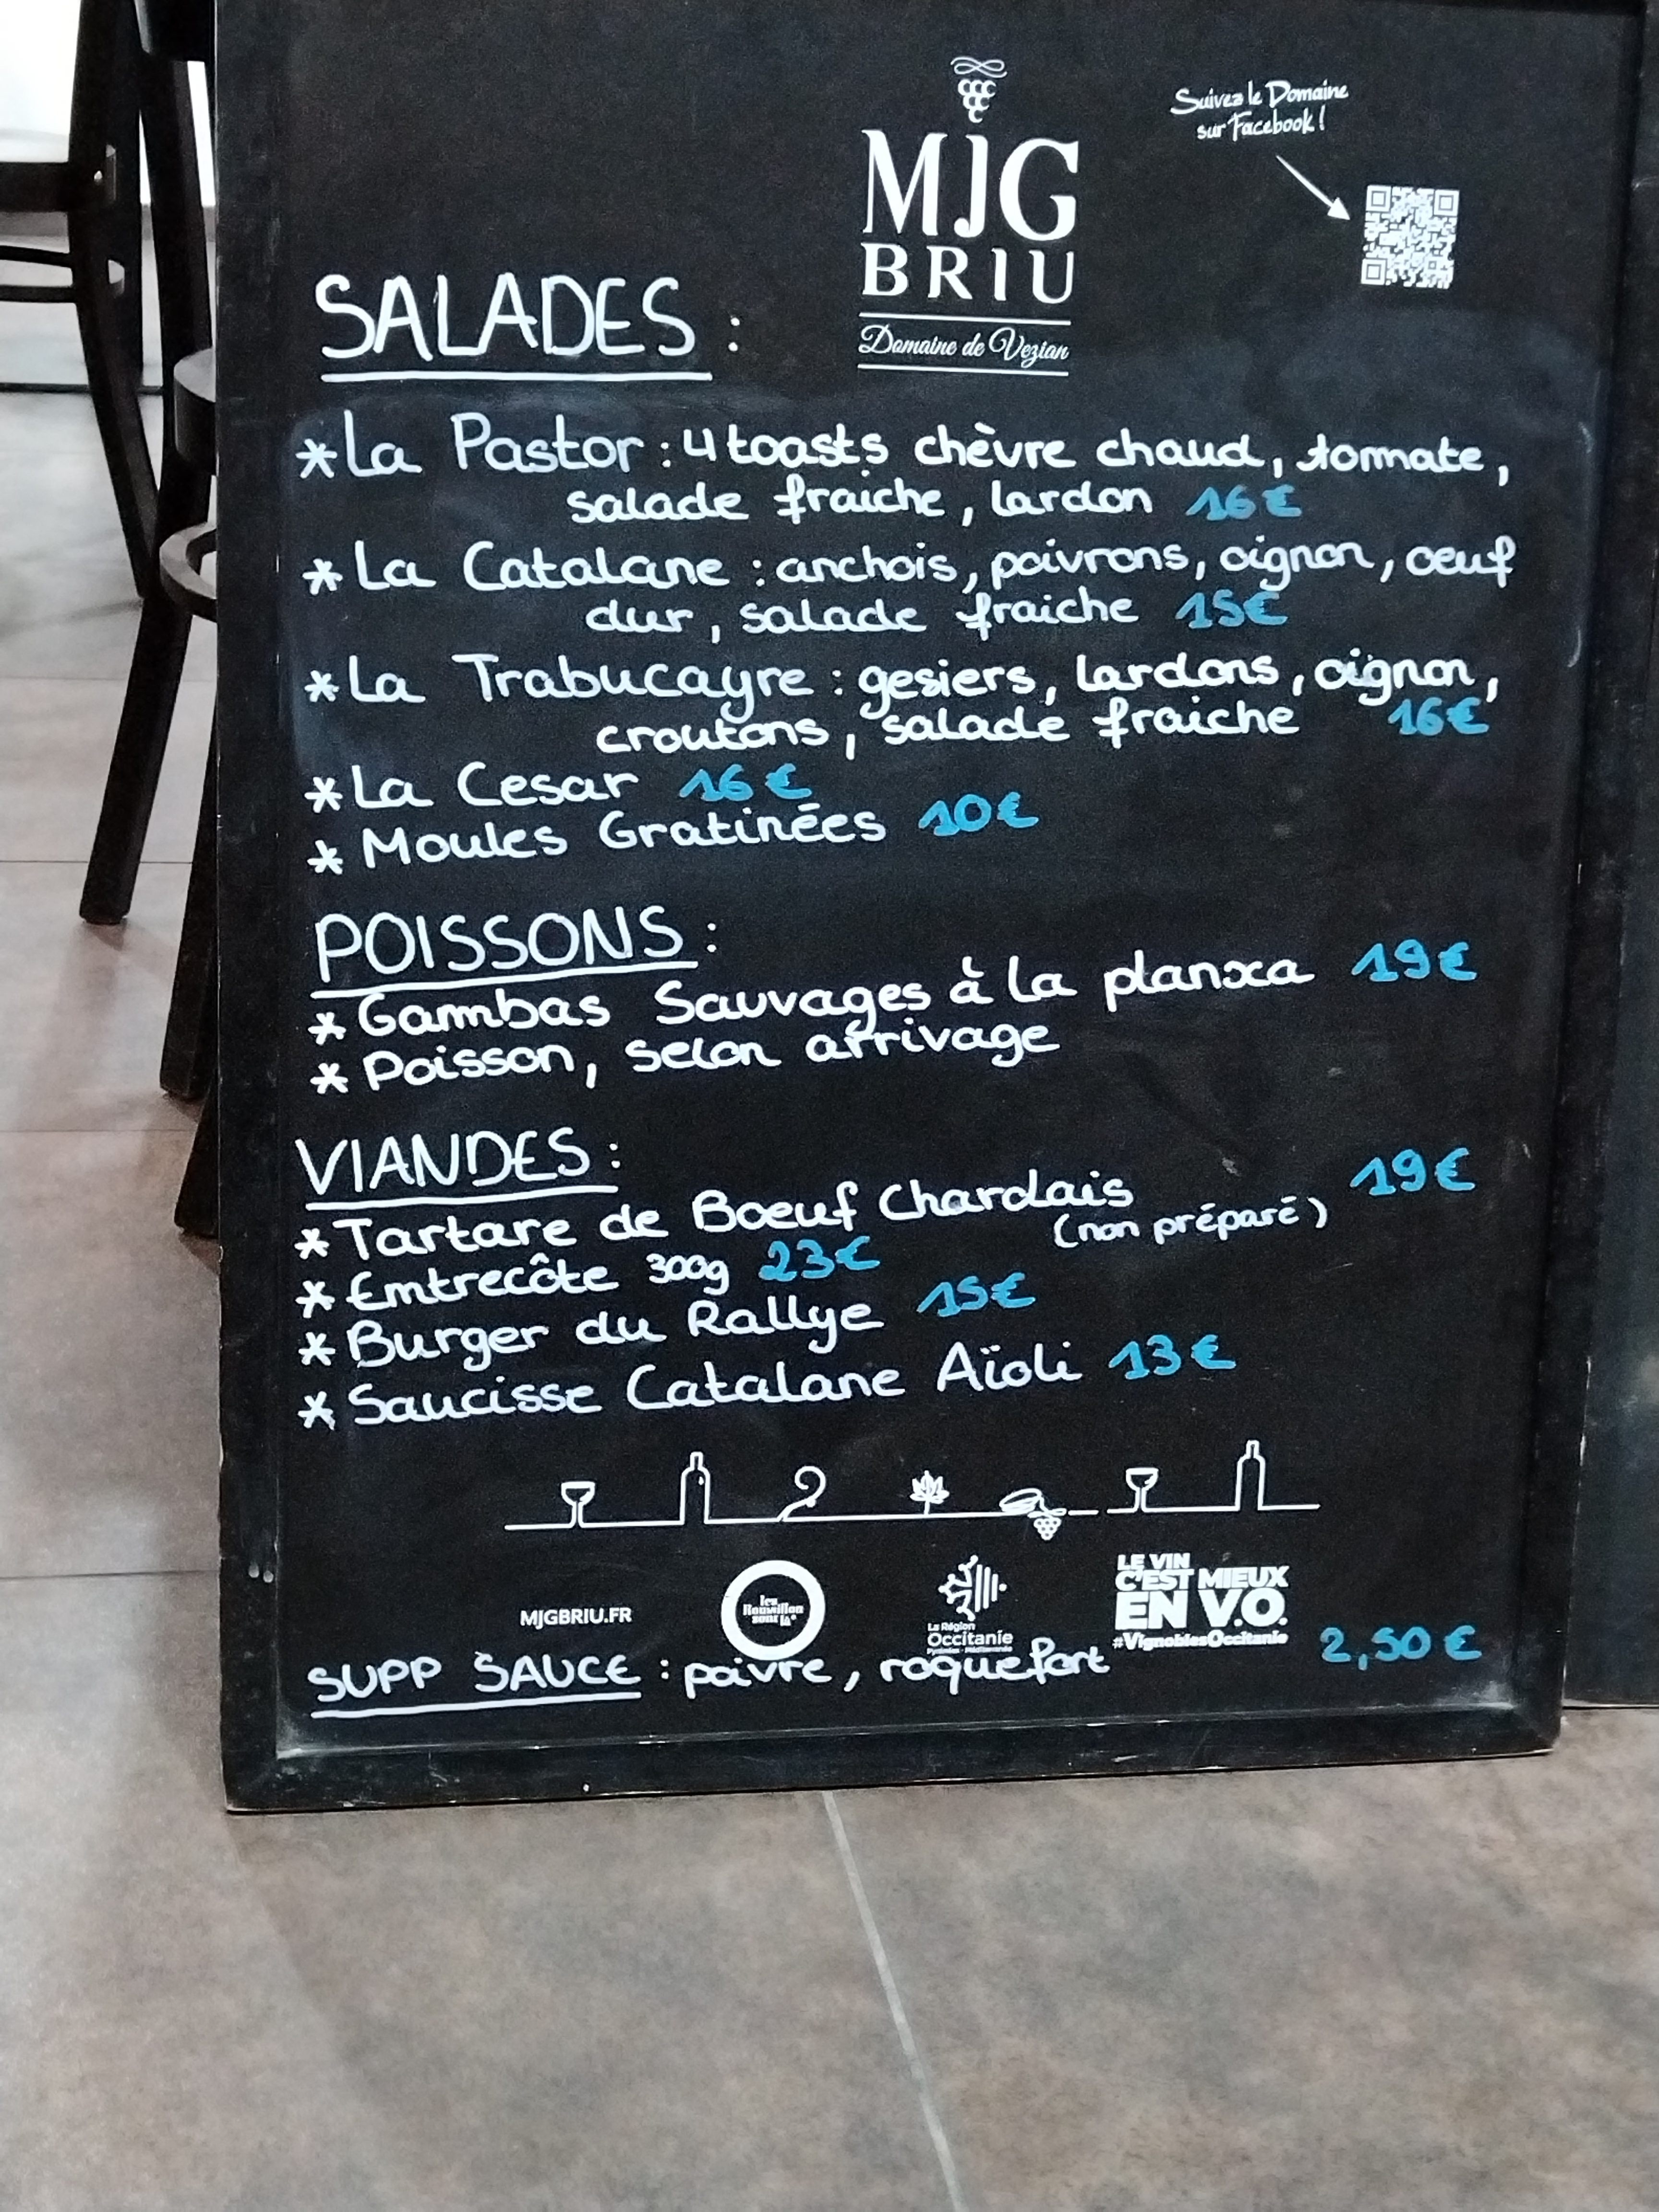 Suivez le Domaine
sur Facebook!
MJG
BRIU
Domaine de Vezian
SALADES :
*La Pastor : 4 toasts chèvre chaud, tomate,
salade fraiche, lardon 16€
*La Catalane : anchois, poivrons, oignon, oeuf
dur, salade fraiche 15€
*La Trabucayre : gesiers, lardons, oignon,
croutons, salade fraiche 16€
*La Cesar 16€
*Moules Gratinées 10€
POISSONS :
*Gambas Sauvages à la planxa 19€
*Poisson, selon arrivage
VIANDES :
*Tartare de Boeuf Chardais 19€
(non préparé)
*Emtrecôte 300g 23€
*Burger du Rallye 15€
*Saucisse Catalane Aïoli 13€
MJGBRIU.FR
les
Roussillon
sont là
La Région
Occitanie
Pyrénées - Méditerranée
LE VIN
C'EST MIEUX
EN V.O.
#VignoblesOccitanie
SUPP SAUCE : poivre, roquefort 2,50€